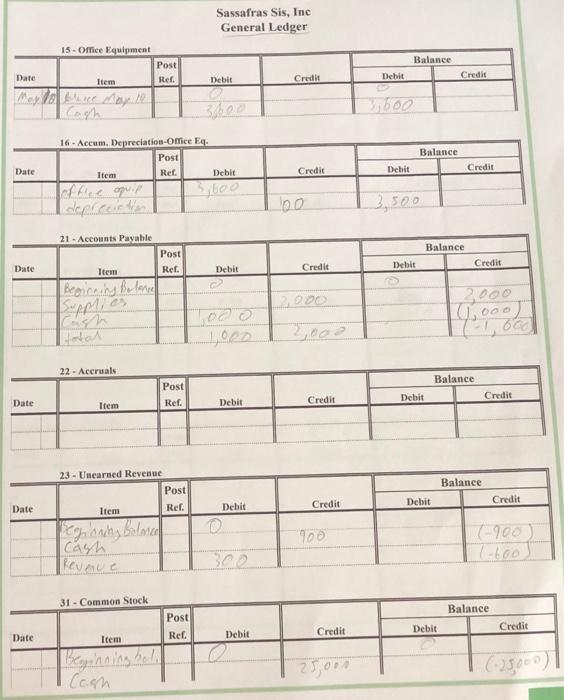 Sassafras Sis, Inc
General Ledger
15 - Office Equipment
Post Balance
Date Item Ref. Debit Credit Debit Credit
May 10 May 10 0 0
Cash 3,600 3,600
16 - Accum. Depreciation-Office Eq.
Post Balance
Date Item Ref. Debit Credit Debit Credit
office equip 3,600
depreciation 100 3,500
21 - Accounts Payable
Post Balance
Date Item Ref. Debit Credit Debit Credit
Beginning Balance 0 0
Supplies 2,000 2,000
Cash 1,000 (1,000)
total 1,000 2,000
22 - Accruals
Post Balance
Date Item Ref. Debit Credit Debit Credit
23 - Unearned Revenue
Post Balance
Date Item Ref. Debit Credit Debit Credit
Beginning Balance 0
Cash 900 (-900)
Revenue 300 (-600)
31 - Common Stock
Post Balance
Date Item Ref. Debit Credit Debit Credit
Beginning bal. 0 0
Cash 25,000 (-25,000)